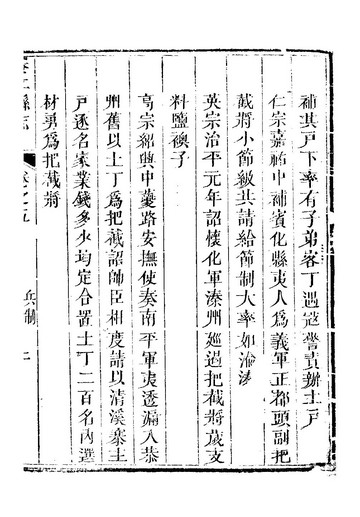 補其戸下率有子弟客丁遇寇警責辦土戸
仁宗嘉祐中補賓化縣夷人爲義軍正都頭副把
截將小節級共請給簡制大率如渝涪
英宗治平元年詔懷化軍溱州廵遏把截將歲支
料鹽襖子
高宗紹興中夔路安撫使奏南平軍夷透漏入恭
州舊以土丁爲把截詔帥臣相度請以清溪寨土
戸逐名家業錢多少均定合置土丁二百名內選
材勇爲把截將
志 卷之五 兵制 二